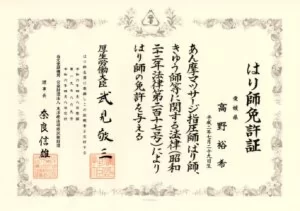 はり師免許証
愛媛県
高野裕希
平成二年七月二十九日生
あん摩マツサージ指圧師、はり師、
きゆう師等に関する法律(昭和
二十二年法律第二百十七号)により
はり師の免許を与える
厚生労働大臣 武見敬三
理事長 奈良信雄